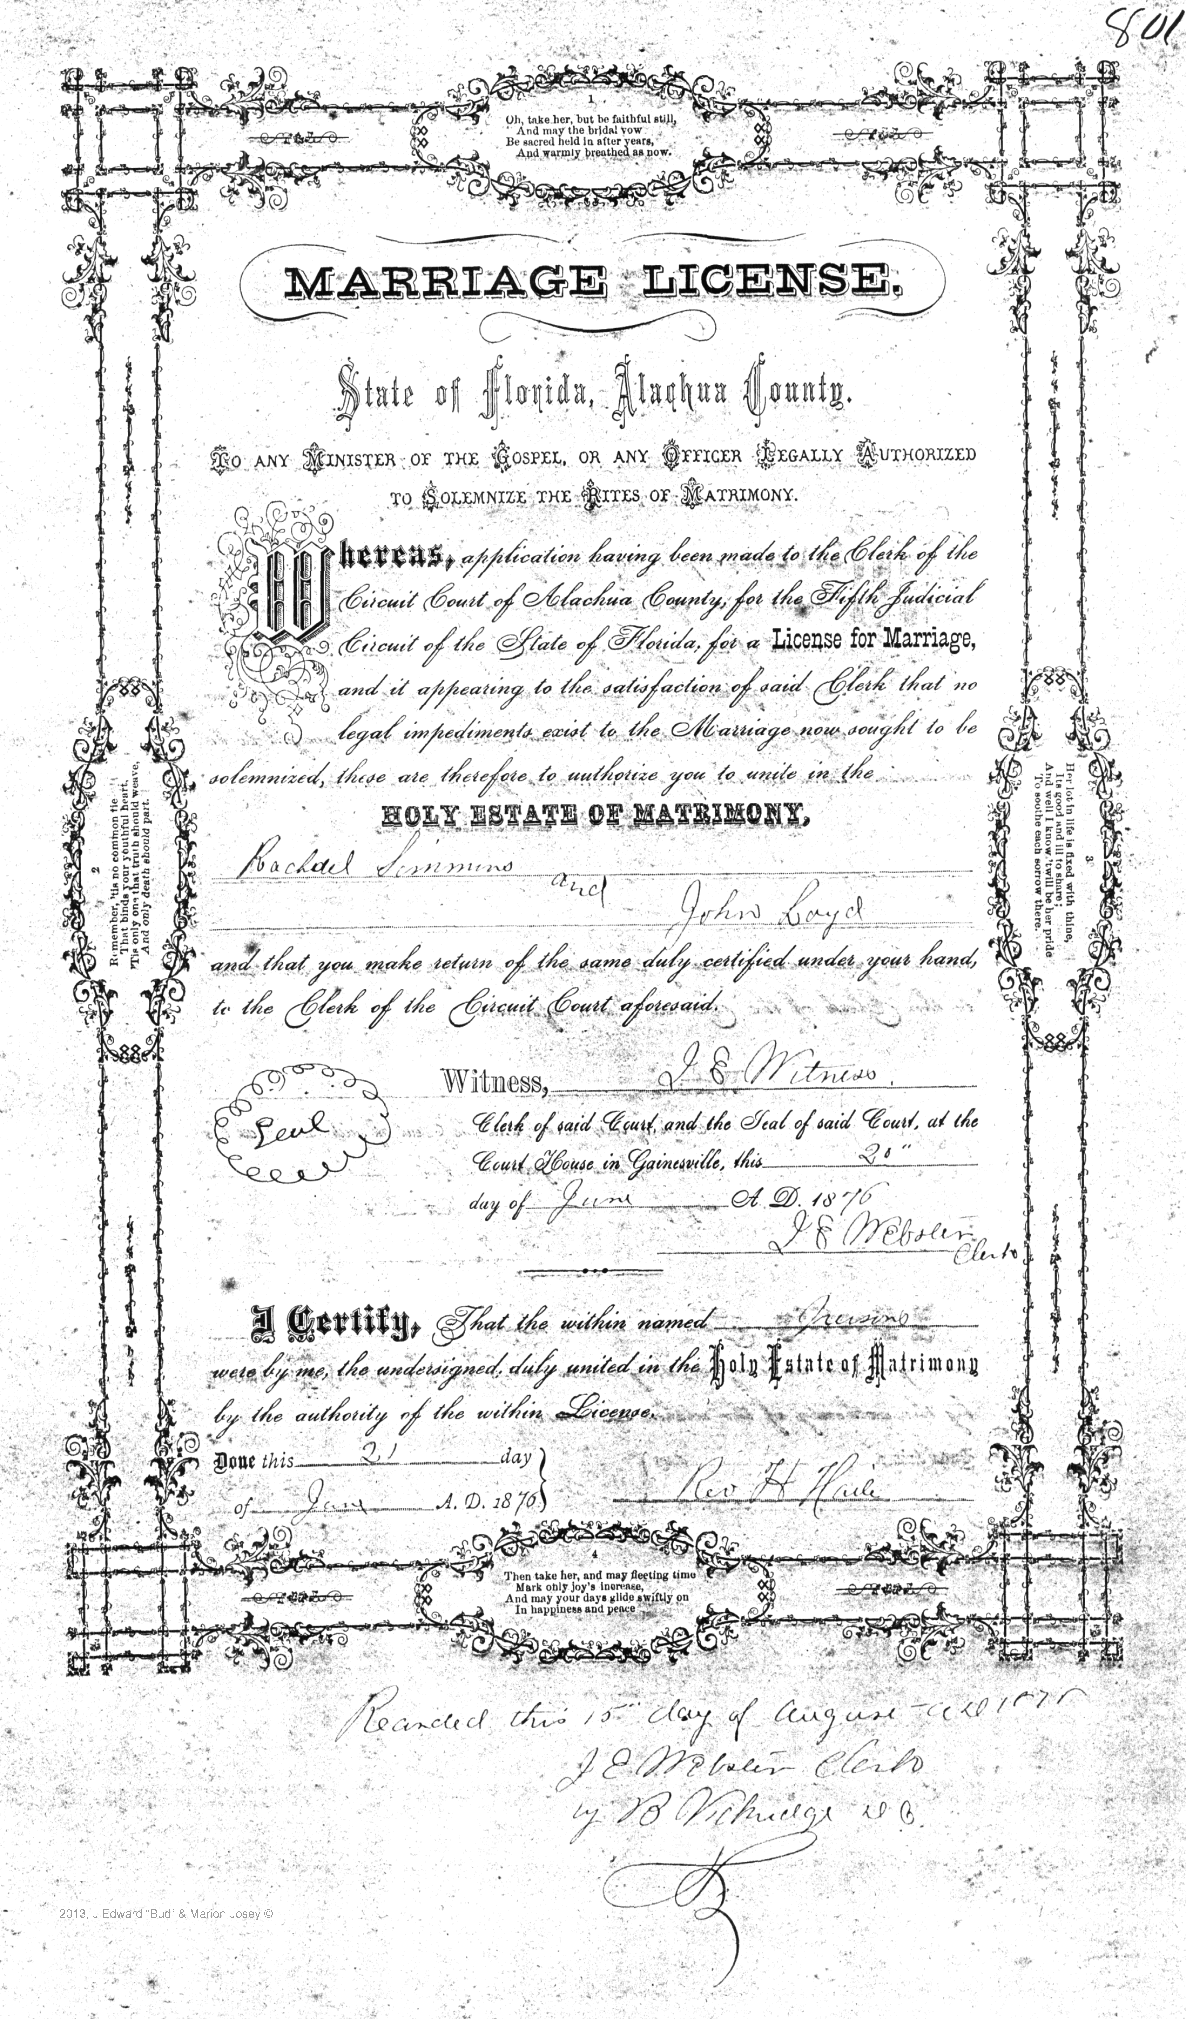 801
1
Oh, take her, but be faithful still,
And may the bridal vow
Be sacred held in after years,
And warmly breathed as now.
MARRIAGE LICENSE.
State of Florida, Alachua County.
TO ANY MINISTER OF THE GOSPEL, OR ANY OFFICER LEGALLY AUTHORIZED
TO SOLEMNIZE THE RITES OF MATRIMONY.
Whereas, application having been made to the Clerk of the
Circuit Court of Alachua County, for the Fifth Judicial
Circuit of the State of Florida, for a License for Marriage,
and it appearing to the satisfaction of said Clerk that no
legal impediments exist to the Marriage now sought to be
solemnized, these are therefore to authorize you to unite in the
HOLY ESTATE OF MATRIMONY,
Rachael Simmons
and
John Loyd
and that you make return of the same duly certified under your hand,
to the Clerk of the Circuit Court aforesaid.
2
Remember, 'tis no common tie
That binds your youthful heart,
'Tis only one that truth should weave,
And only death should part.
3
Her lot in life is fixed with thine,
Its good and ill to share;
And well I know 'twill be her pride
To soothe each sorrow there.
Seal
Witness, J E Witness.
Clerk of said Court, and the Seal of said Court, at the
Court House in Gainesville, this 20"
day of June A. D. 1876
J E Webster
Clerk
I Certify, That the within named Persons
were by me, the undersigned, duly united in the Holy Estate of Matrimony
by the authority of the within License.
Done this 21 day
of June A. D. 1876
Rev H Haile
4
Then take her, and may fleeting time
Mark only joy's increase,
And may your days glide swiftly on
In happiness and peace
Recorded this 15" day of August AD 1876
J E Webster Clerk
by B D.C.
2013, J Edward "Bud" & Marion Josey ©